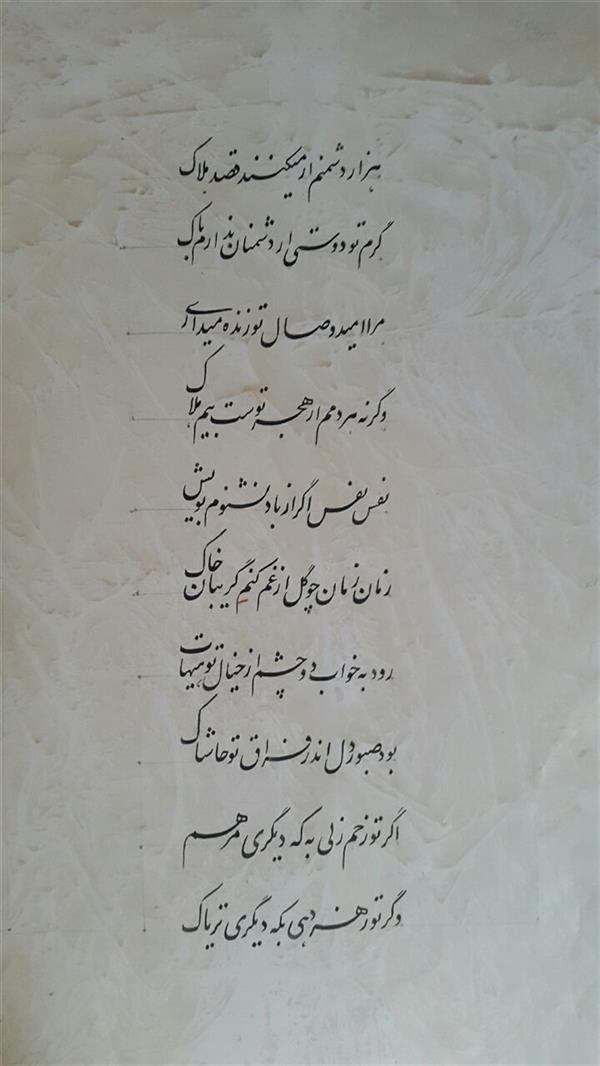 هزار دشمنم ار میکنند قصد هلاک
گرم تو دوستی از دشمنان ندارم باک
مرا امید وصال تو زنده میدارد
وگرنه هر دمم از هجر توست بیم هلاک
نفس نفس اگر از باد نشنوم بویش
زمان زمان چو گل از غم کنم گریبان خاک
رود به خواب دو چشم از خیال تو هیهات
بود صبور دل اندر فراق تو حاشاک
اگر تو زخم زنی به که دیگری مرهم
وگر تو زهر دهی بکه دیگری تریاک